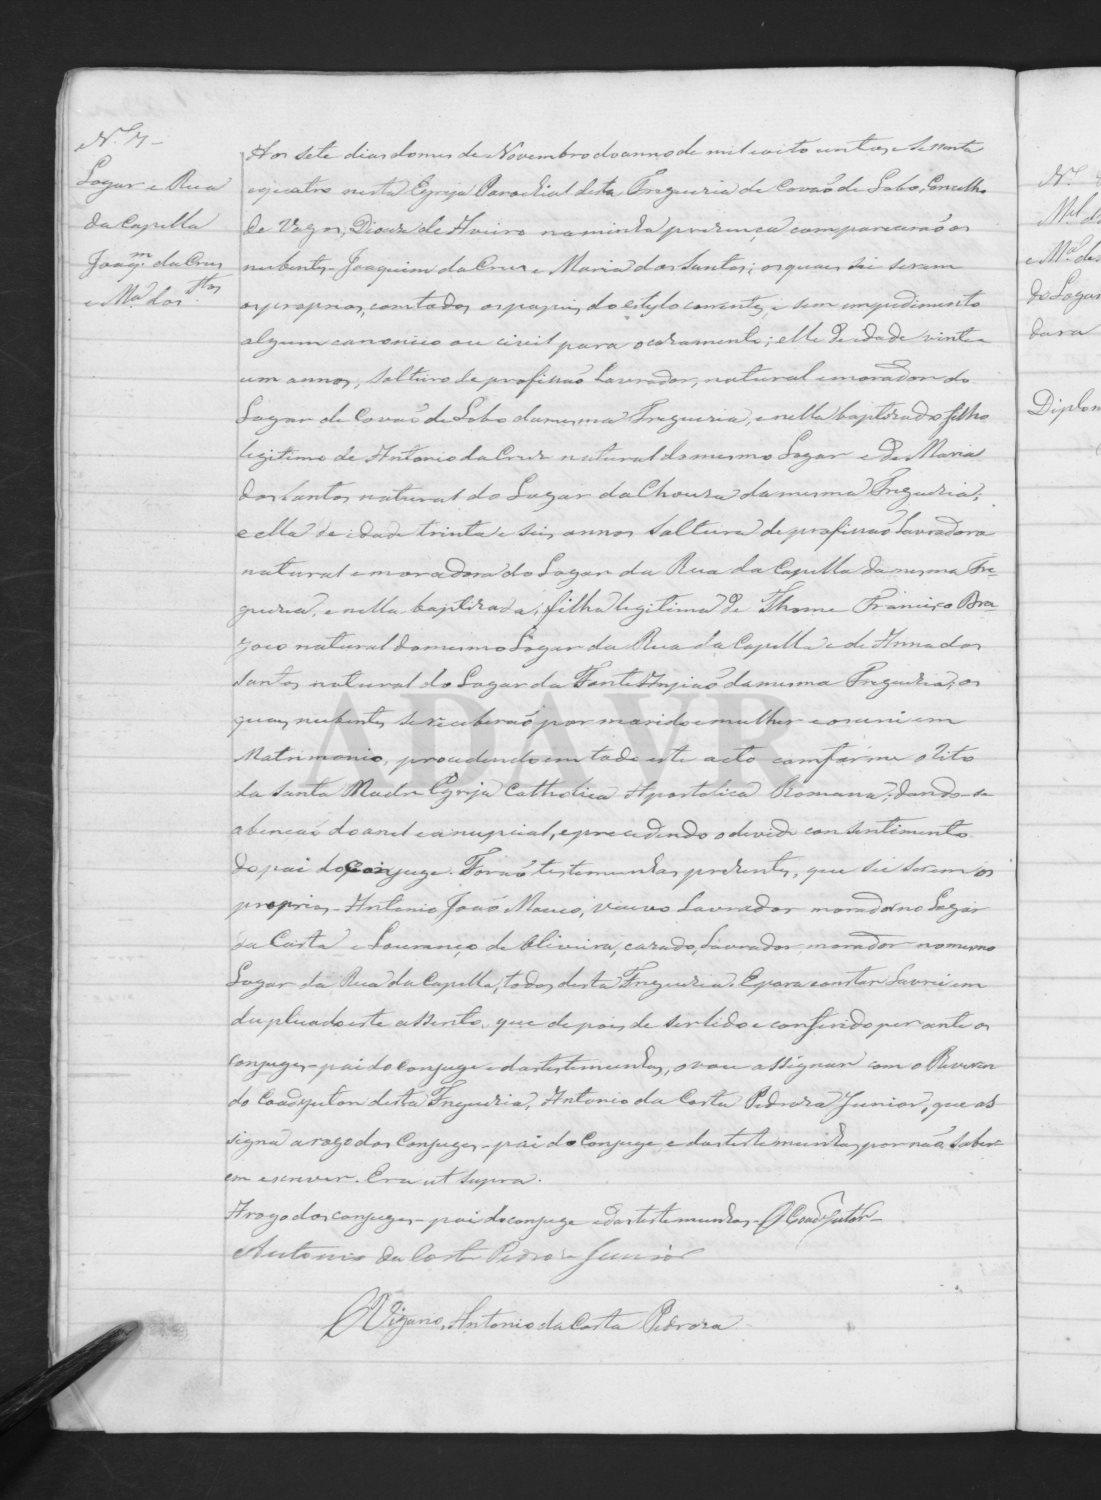 N.º 7-
Logar e Rua
da Capella
Joaq.m da Cruz
e M.a dos Stos
Aos sete dias do mes de Novembro do anno de mil e oito centos e sessenta
e quatro nesta Egreja Parochial desta Freguezia de Covão de Lobo, Concelho
de Vagos, Diocese de Aveiro na minha prezença comparecerão os
nubentes - Joaquim da Cruz e Maria dos Santos; os quaes sei serem
os proprios, com todos os papeis do estylo correntes, e sem impedimento
algum canonico ou civil para o cazamento; elle de idade vinte e
um annos, solteiro de profissão Lavrador, natural e morador do
Logar de Covão de Lobo da mesma Freguezia, e nella baptizado filho
legitimo de Antonio da Cruz natural do mesmo Logar e de Maria
dos Santos natural do Lugar da Chouza da mesma Freguezia;
e ella de idade trinta e seis annos solteira de profissão Lavradora
natural e moradora do Logar da Rua da Capella da mesma Fre-
guezia, e nella baptizada; filha legitima de Thome Francisco Bra-
zoio natural do mesmo Logar da Rua da Capella e de Anna dos
Santos natural do Lugar da Fonte Anjião da mesma Freguezia; os
quaes nubentes se receberão por marido e mulher e os uni em
Matrimonio, procedendo em todo este acto comfórme o Rito
da Santa Madre Egreja Catholica Apostolica Romana; dando-se
a benção do anel e a nupcial, e precedendo o devido consentimento
do pai do conjuge. Forão testemunhas prezentes, que sei serem os
proprios - Antonio João Mouco, viuvo Lavrador morador no Logar
da Costa e Lourenço de Oliveira, cazado, Lavrador, morador no mesmo
Lugar da Rua da Capella, todos desta Freguezia. E para constar Lavrei em
duplicado este assento, que depois de ser lido e conferido perante os
conjuges - pai do conjuge e das testemunhas, o vou assignar com o Reveren
do Coadjutor desta Freguezia, Antonio da Costa Pedroza Junior, que as
signa a rogo dos Conjuges - pai do Conjuge e das testemunhas por não sabe-
em escrever. Era ut supra.
A rogo dos conjuges - pai do conjuge e das testemunhas - O Coadjutor -
Antonio da Costa Pedroza Junior
O Vigario, Antonio da Costa Pedroza
ADAVR
N.º
M.el d
e M.a de
do Logar
dara
Diplom